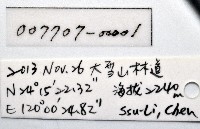 007707-00001
2013 Nov. 26 大雪山林道
N24°15'22.32" 海拔2240m
E120°00'24.82" Ssu-Li, Chen